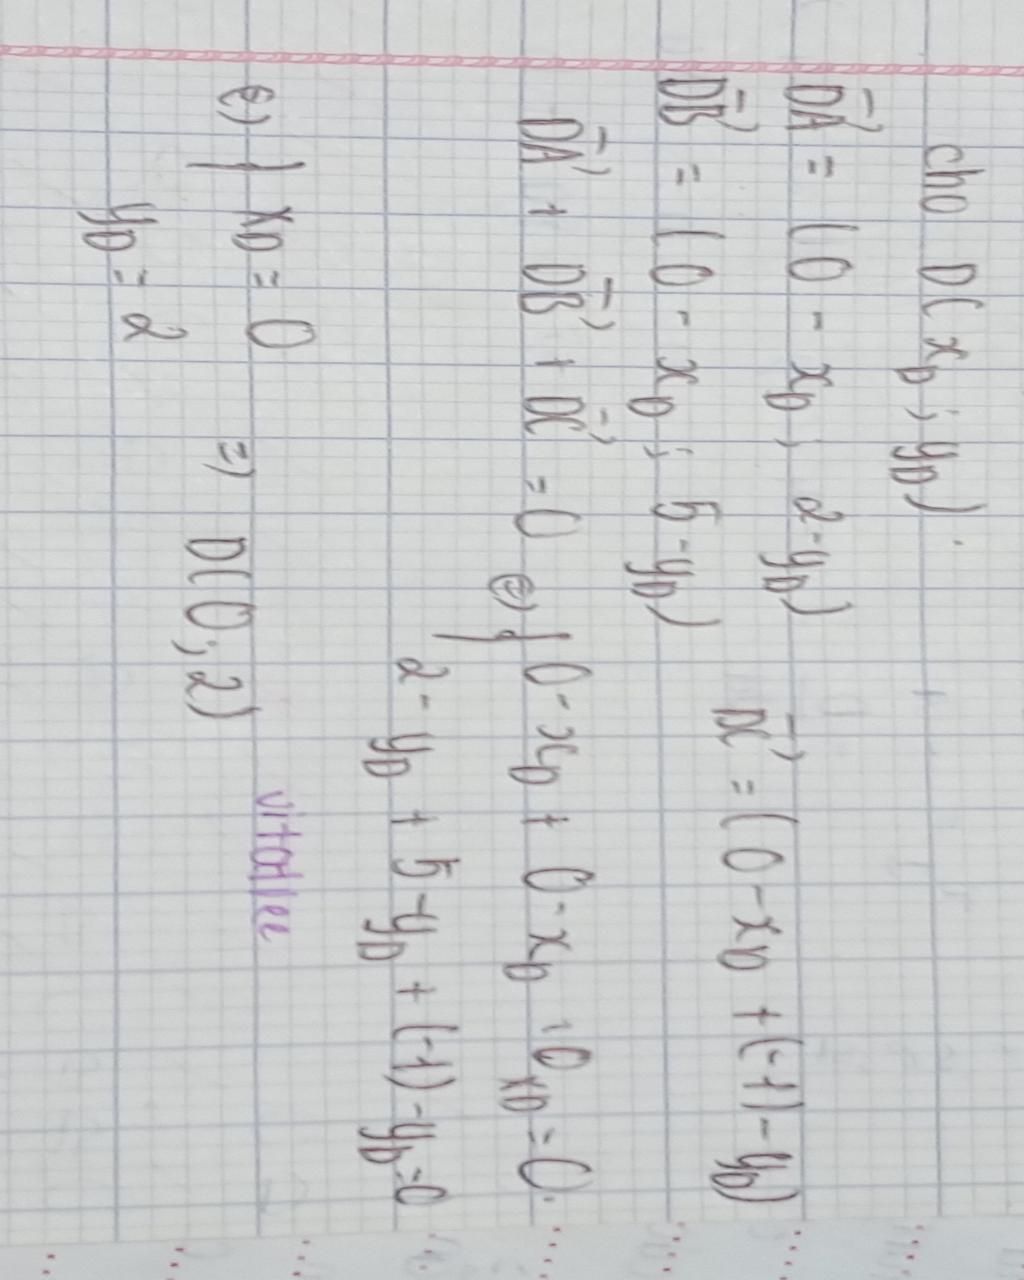 cho D(x_D; y_D).
→DA = (0 - x_D; 2-y_D)
→DC = (0 - x_D + (-1) - y_D)
→DB = (0 - x_D; 5-y_D)
→DA + →DB + →DC = 0 (=) { 0 - x_D + 0 - x_D + 0 - x_D = 0
2 - y_D + 5 - y_D + (-1) - y_D = 0
(=) { x_D = 0
y_D = 2
=) D(0; 2)
vitallee